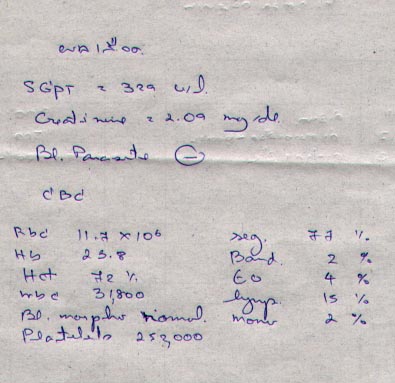 ผลเลือด
SGPT = 329 u/l.
Creatinine = 2.09 mg/dl.
Bl. Parasite ⊖
CBC
Rbc 11.7 × 10⁶ seg. 77 %
Hb 23.8 Band. 2 %
Hct 72 % Eo 4 %
wbc 31,800 lymp. 15 %
Bl. morpho normal. mono 2 %
Platelets 252,000